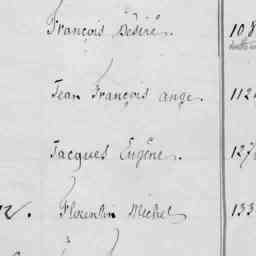 François Désiré. 108
Jean François ange. 112
Jacques Eugène. 127
Florentin Michel 133